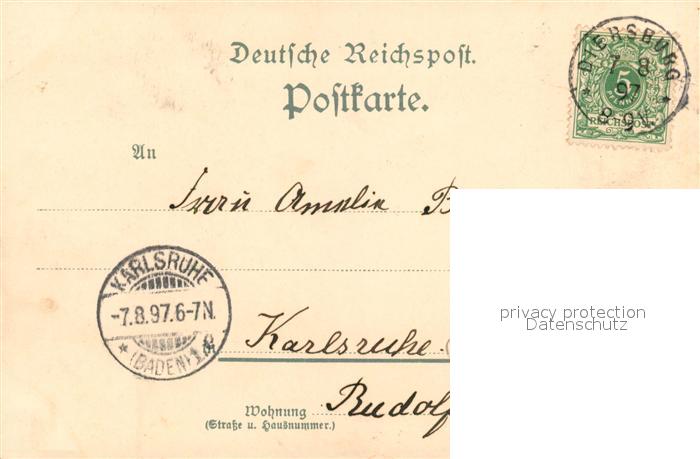 Deutsche Reichspost.
Postkarte.
DIERSBURG
7 8
97
8-9V.
5
REICHSPOST
An
Frau Amelie B
KARLSRUHE
-7.8.97.6-7N.
(BADEN)
Karlsruhe.
Wohnung Rudolf
(Straße u. Hausnummer.)
privacy protection
Datenschutz